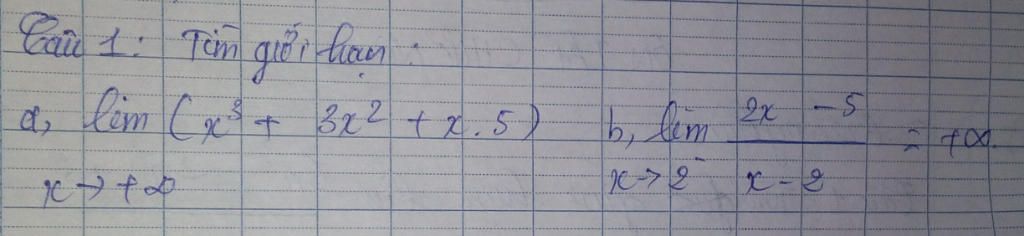 Câu 1: Tìm giới hạn:
a, lim (x³ + 3x² + x . 5) b, lim 2x - 5 / x - 2 = +∞.
x → +∞ x → 2⁻